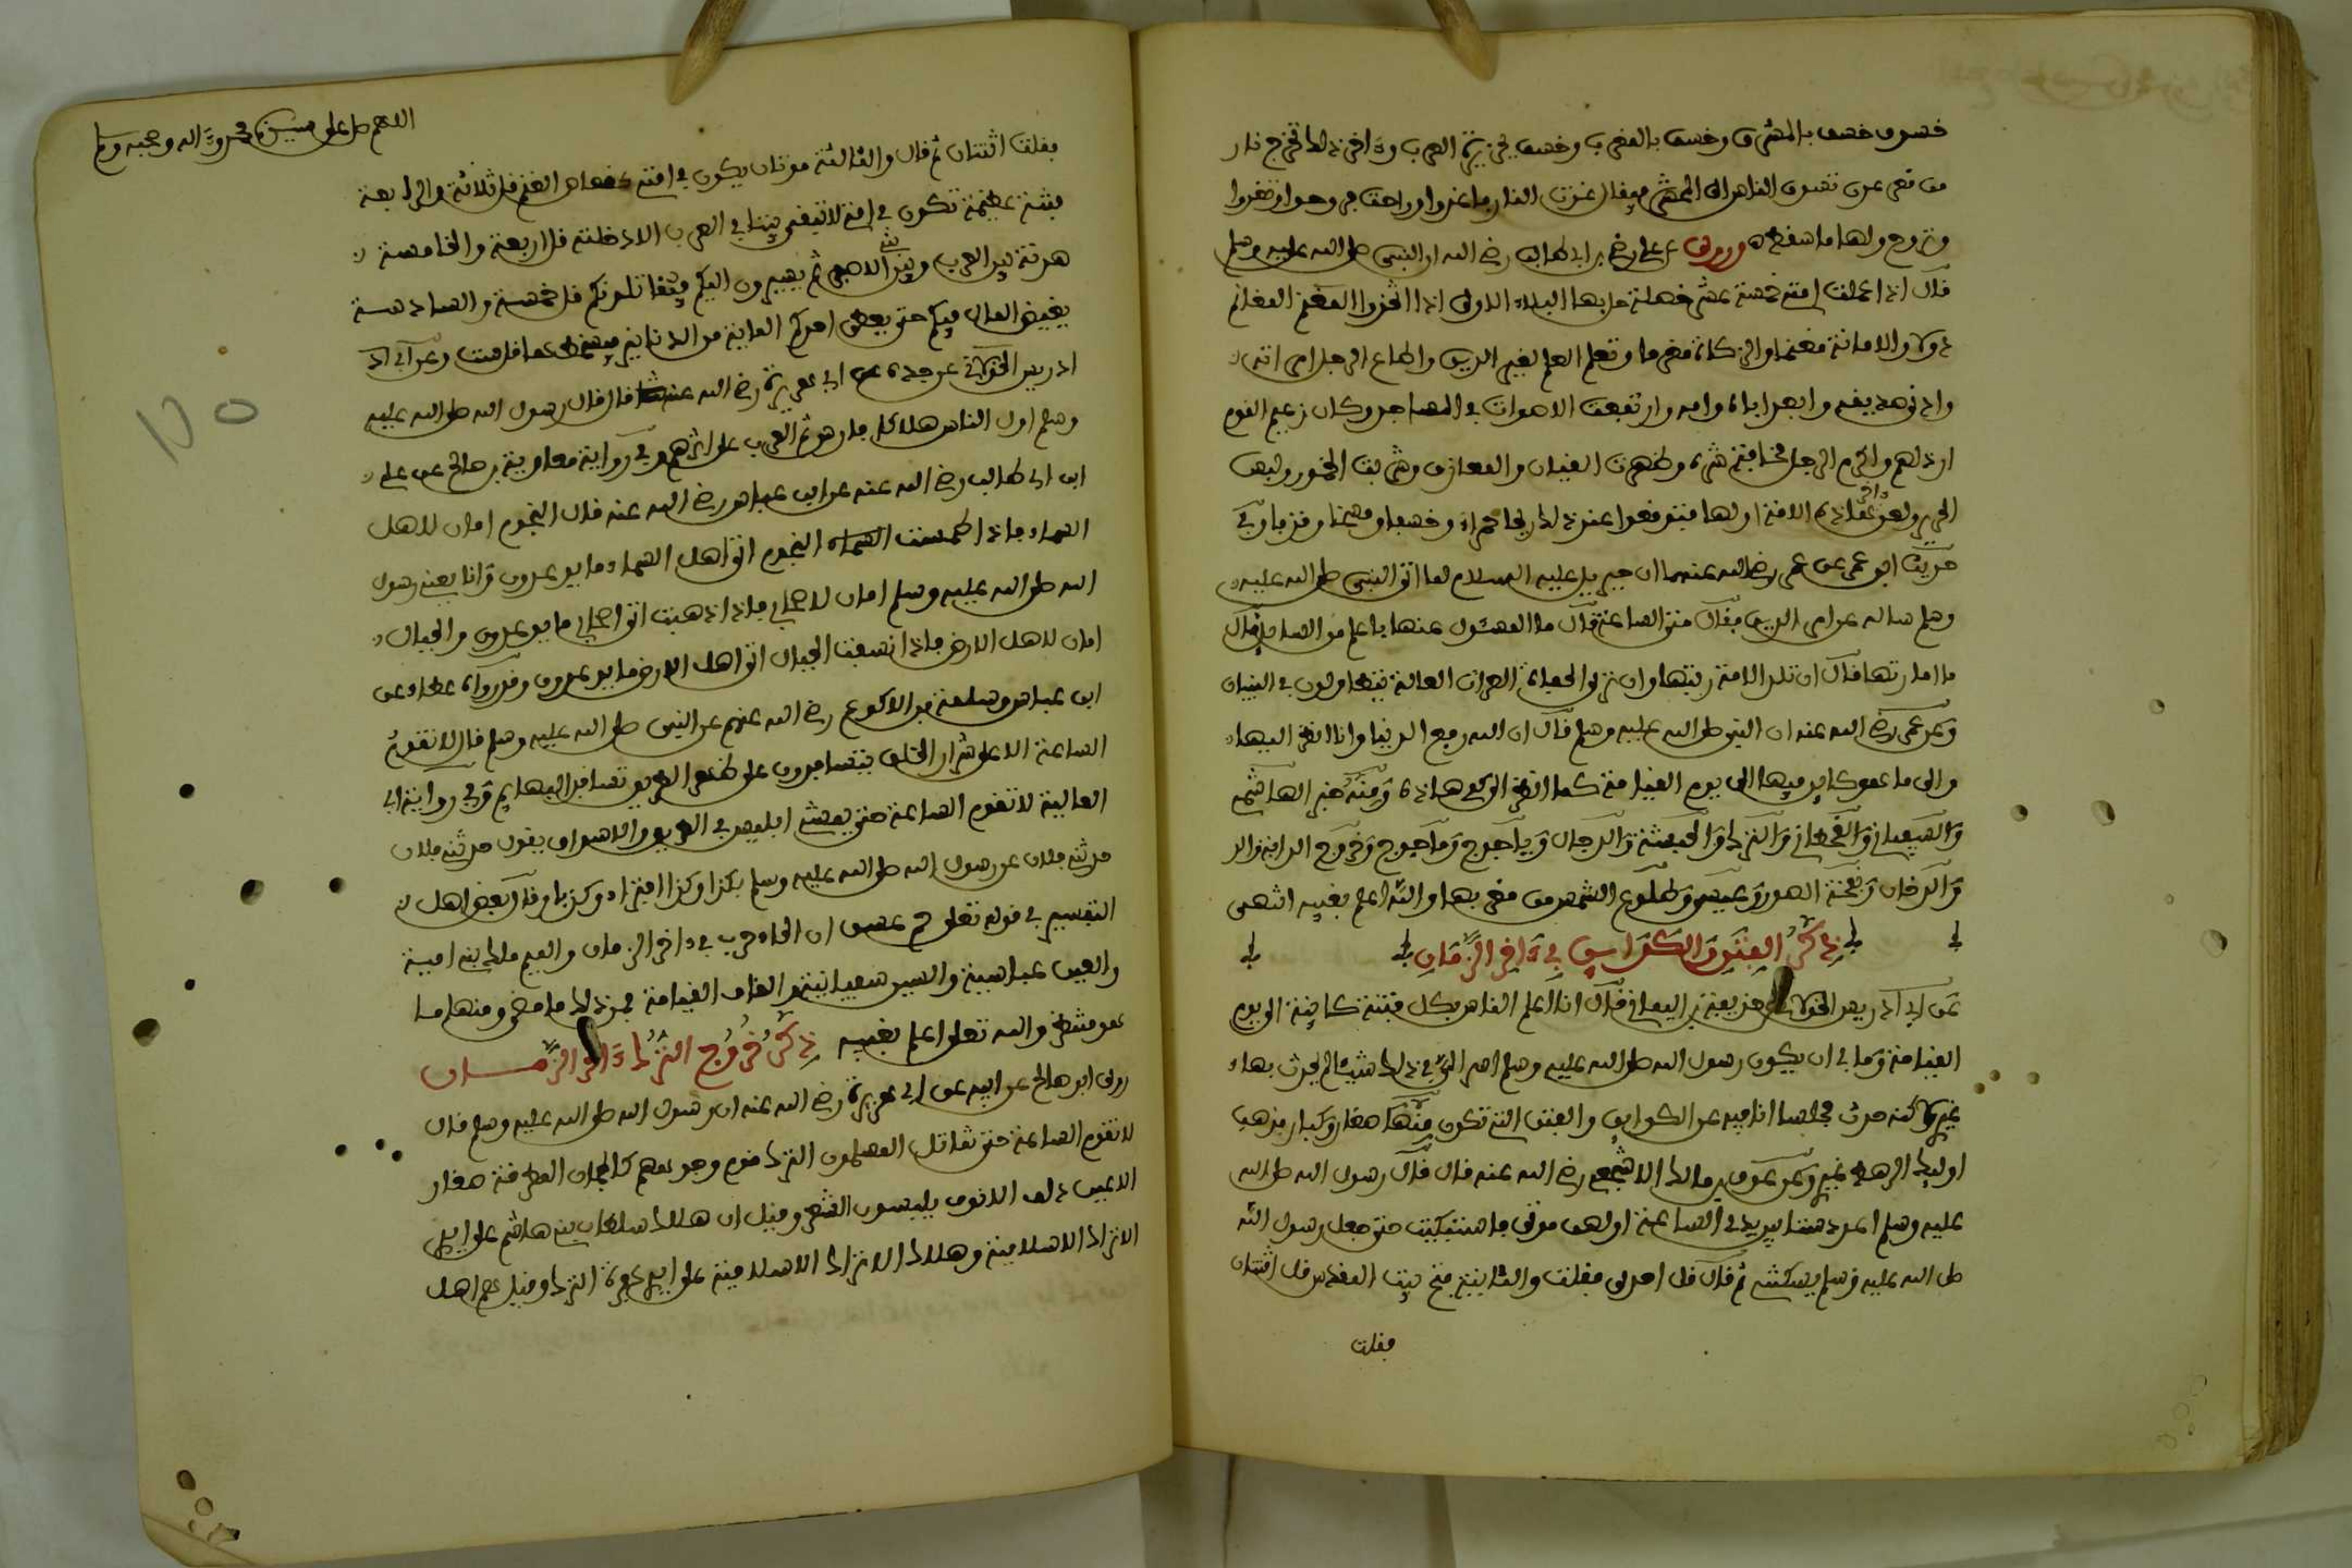 خسوف خسف بالمشرق وخسف بالمغرب وخسف بجزيرة العرب وءاخر ذلك تخرج نار
من قعر عدن تسوق الناس الى المحشر فيقال غدت النار فاغدوا وراحت فروحوا
وتروح ولها ما سقط وروى عن علي بن ابي طالب رضي الله عنه ان النبي صلى الله عليه وسلم
قال اذا عملت امتي خمسة عشر خصلة حل بها البلاء الاولى اذا اتخذوا المغنم المغانم
دولا والامانة مغنما والزكاة مغرما وتعلم العلم لغير الدين واطاع الرجل امراته
وادنى صديقه وابعد اباه وامه وارتفعت الاصوات في المساجد وكان زعيم القوم
ارذلهم واكرم الرجل مخافة شره وظهرت القيان والمعازف وشربت الخمور ولبس
الحرير ولعن ءاخر هذه الامة اولها فيتوقعوا عند ذلك ريحا حمراء وخسفا ومسخا وقذفا وفي
حديث ابن عمر عن عمر رضي الله عنهما ان جبريل عليه السلام لما اتى النبي صلى الله عليه
وسلم ساله عن امر الدين فقال متى الساعة قال ما المسئول عنها باعلم من السائل قال
ما امارتها قال ان تلد الامة ربتها وان ترى الحفاة العراة العالة يتطاولون في البنيان
وعن عمر رضي الله عنه ان النبي صلى الله عليه وسلم قال ان الله رفع الدنيا وانا انظر اليها
والى ما هو كاين فيها الى يوم القيامة كما انظر الى كفي هاذه ومنه خبر الهاشمي
والسفياني والقحطاني والترك والحبشة والدجال وياجوج وماجوج وخروج الدابة
والدخان ونفخة الصور وعيسى وطلوع الشمس من مغربها والله اعلم بغيبه انتهى
ذكر الفتن والكواين في ءاخر الزمان
عن ابي ادريس الخولاني عن حذيفة بن اليمان قال انا اعلم الناس بكل فتنة كاينة الى يوم
القيامة وما بي ان يكون رسول الله صلى الله عليه وسلم اسر الي في ذلك شيئا لم يحدث بها
غيري لاكنه حدث مجلسا انا فيه عن الكواين والفتن التي تكون منها صغار وكبار فذهب
اوليك الرهط غيري وعن عوف بن مالك الاشجعي رضي الله عنه قال قال رسول الله صلى الله
عليه وسلم اعدد ستا بين يدي الساعة اولهن موتي فاستبكيت حتى جعل رسول الله
صلى الله عليه وسلم يسكتني ثم قال قل احدى فقلت والثانية فتح بيت المقدس قل اثنتان
فقلت
اللهم صل على سيدنا محمد وءاله وصحبه وسلم
فقلت اثنتان ثم قال والثالثة موتان يكون في امتي كعقاص الغنم قل ثلاثة والرابعة
فتنة عظيمة تكون في امتي لا تبقي بيتا في العرب الا دخلته قل اربعة والخامسة
هدنة بين العرب وبين بني الاصفر ثم يسيرون اليكم فيقاتلونكم قل خمسة والسادسة
يفيض المال فيكم حتى يعطى احدكم الماية من الدنانير فيسخطها قل ست وعن ابي
ادريس الخولاني عن جده عن ابي هريرة رضي الله عنه قال قال رسول الله صلى الله عليه
وسلم اول الناس هلاكا فارس ثم العرب على اثرهم وفي رواية معاوية بن صالح عن علي
ابن ابي طالب رضي الله عنه عن ابن عباس رضي الله عنه قال النجوم امان لاهل
السماء فاذا طمست النجوم اتى اهل السماء ما يوعدون وانا يعني رسول
الله صلى الله عليه وسلم امان لاصحابي فاذا ذهبت اتى اصحابي ما يوعدون والجبال
امان لاهل الارض فاذا انسفت الجبال اتى اهل الارض ما يوعدون وقد رواه عطاء عن
ابن عباس وسلمة بن الاكوع رضي الله عنهم عن النبي صلى الله عليه وسلم قال لا تقوم
الساعة الا على شرار الخلق يتسافدون على ظهر الطريق تسافد البهايم وفي رواية ابي
العالية لا تقوم الساعة حتى يمشي ابليس في الطريق والاسواق يقول حدثني فلان
حدثني فلان عن رسول الله صلى الله عليه وسلم بكذا وكذا افتراء وكذبا وقال بعض اهل
التفسير في قوله تعلى حم عسق ان الحاء حرب في ءاخر الزمان والميم ملك بني امية
والعين عباسية والسين سفيانية والقاف القيامة فمن ذلك ما مضى ومنها ما
هو منتظر والله تعلى اعلم بغيبه ذكر خروج الترك ءاخر الزمان
روى ابو صالح عن ابيه عن ابي هريرة رضي الله عنه ان رسول الله صلى الله عليه وسلم قال
لا تقوم الساعة حتى تقاتل المسلمون الترك قوم وجوههم كالمجان المطرقة صغار
الاعين ذلف الانوف يلبسون الشعر وقيل ان هلاك سلطان بني هاشم على ايدي
الاتراك الاسلامية وهلاك الاتراك الاسلامية على ايدي كفرة الترك وقيل هم اهل